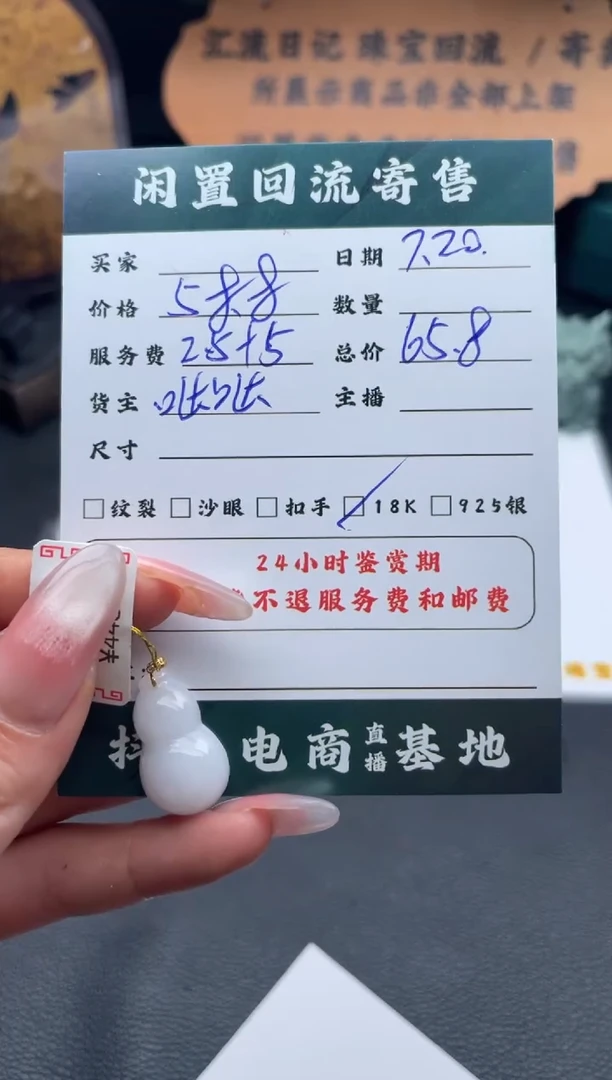 汇流日记 珠宝回流 / 寄
所展示商品非全部上架
闲置回流寄售
买家 日期 7.20.
价格 588 数量
服务费 25+5 总价 65.8
货主 主播
尺寸
纹裂 沙眼 扣手 18K 925银
24小时鉴赏期
不退服务费和邮费
电商直播基地